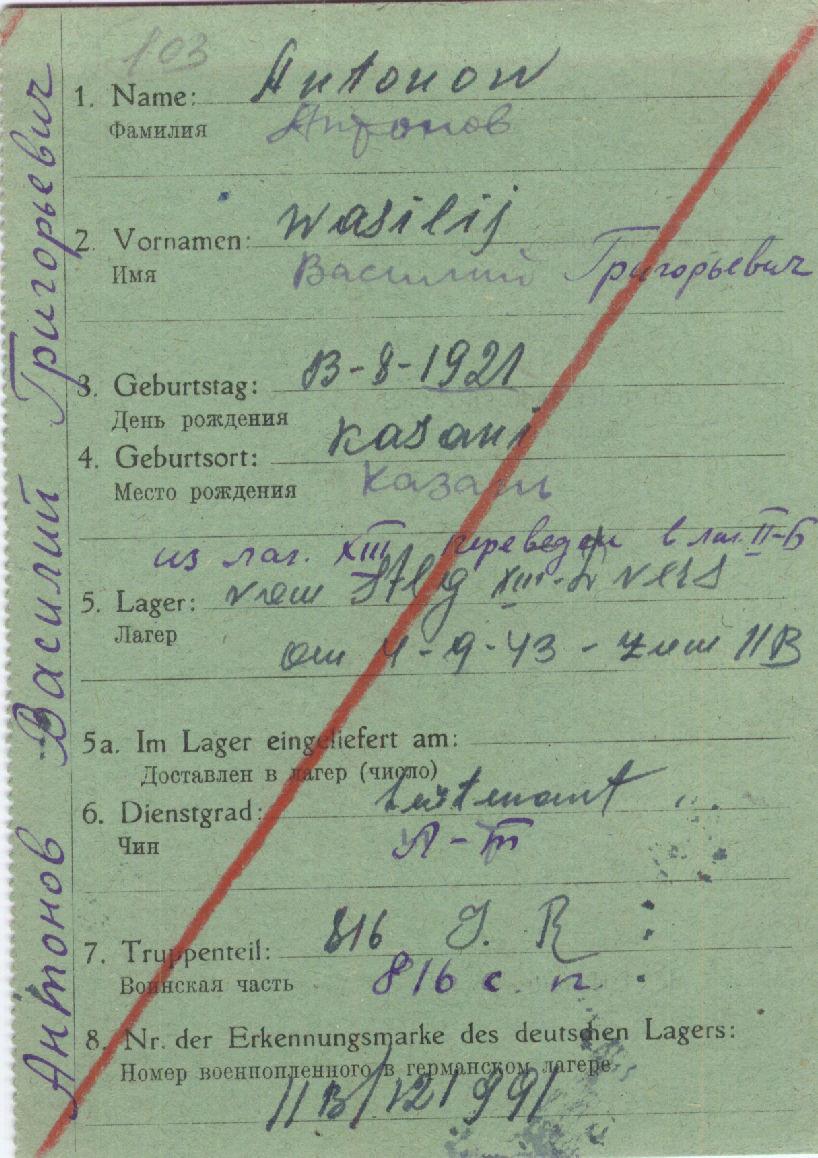 103
1. Name: Antonow
Фамилия Антонов
2. Vornamen: Wasilij
Имя Василий Григорьевич
3. Geburtstag: 13-8-1921
День рождения
4. Geburtsort: Kasani
Место рождения Казань
из лаг. XIII переведен в лаг. II-Б
5. Lager: vom Stlg XIII- vers
Лагер am 4-9-43 - zum IIB
5a. Im Lager eingeliefert am:
Доставлен в лагер (число)
6. Dienstgrad: Leutenant
Чин Л-т
7. Truppenteil: 816 J. R
Воинская часть 816 с. п.
8. Nr. der Erkennungsmarke des deutschen Lagers:
Номер военнопленного в германском лагере
IIB/121991
Антонов Василий Григорьевич